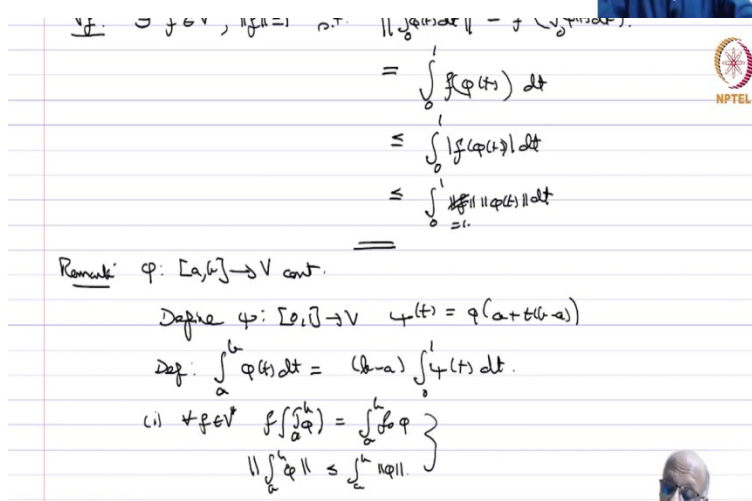 Pf. ∃ f∈V*, ||f||=1 s.t. ||∫₀¹φ(t)dt|| = f(∫₀¹φ(t)dt).
NPTEL
= ∫₀¹ f(φ(t)) dt
≤ ∫₀¹ |f(φ(t))| dt
≤ ∫₀¹ ||f|| ||φ(t)|| dt
=1.
Remark: φ: [a,b]→V cont.
Define ψ: [0,1]→V ψ(t) = φ(a+t(b-a))
Def: ∫ₐᵇ φ(t) dt = (b-a) ∫₀¹ ψ(t) dt.
(i) ∀f∈V* f(∫ₐᵇφ) = ∫ₐᵇ f∘φ
||∫ₐᵇ φ|| ≤ ∫ₐᵇ ||φ||.